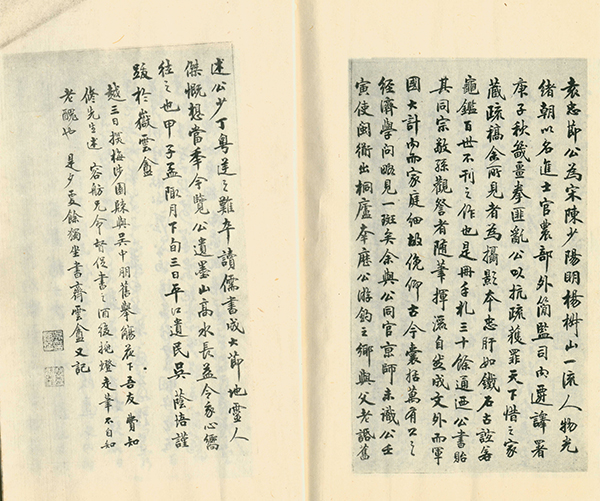 袁忠節公為宋陳少陽明楊椒山一流人物光
緒朝以名進士官農部外簡監司內遷譯署
庚子秋畿疆拳匪亂公以抗疏獲罪天下惜之家
藏疏稿余所見者為攝影本忠肝如鐵石古誼若
龜鑑百世不刊之作也是冊手札三十餘通迺公書貽
其同宗敬孫觀詧者隨筆揮灑自然成文外而軍
國大計內而家庭細故俛仰古今囊括萬有公之
經濟學問略見一斑矣余與公同官京師未識公壬
寅使閩衛出桐廬奉公游釣之鄉與父老話舊
述公少丁粵逆之難卒讀儒書成大節地靈人
傑慨想當年今覽公遺墨山高水長益令余心嚮
往之也甲子孟陬月下旬三日平江遺民吳蔭培謹
跋於嶽雲盦
越三日探梅歸與吳中朋舊舉觴夜下吾友費知
修先生述 容舫兄命督促書之酒後挑燈走筆不自知
老醜也 是夕餘獨坐書齊雲盦又記